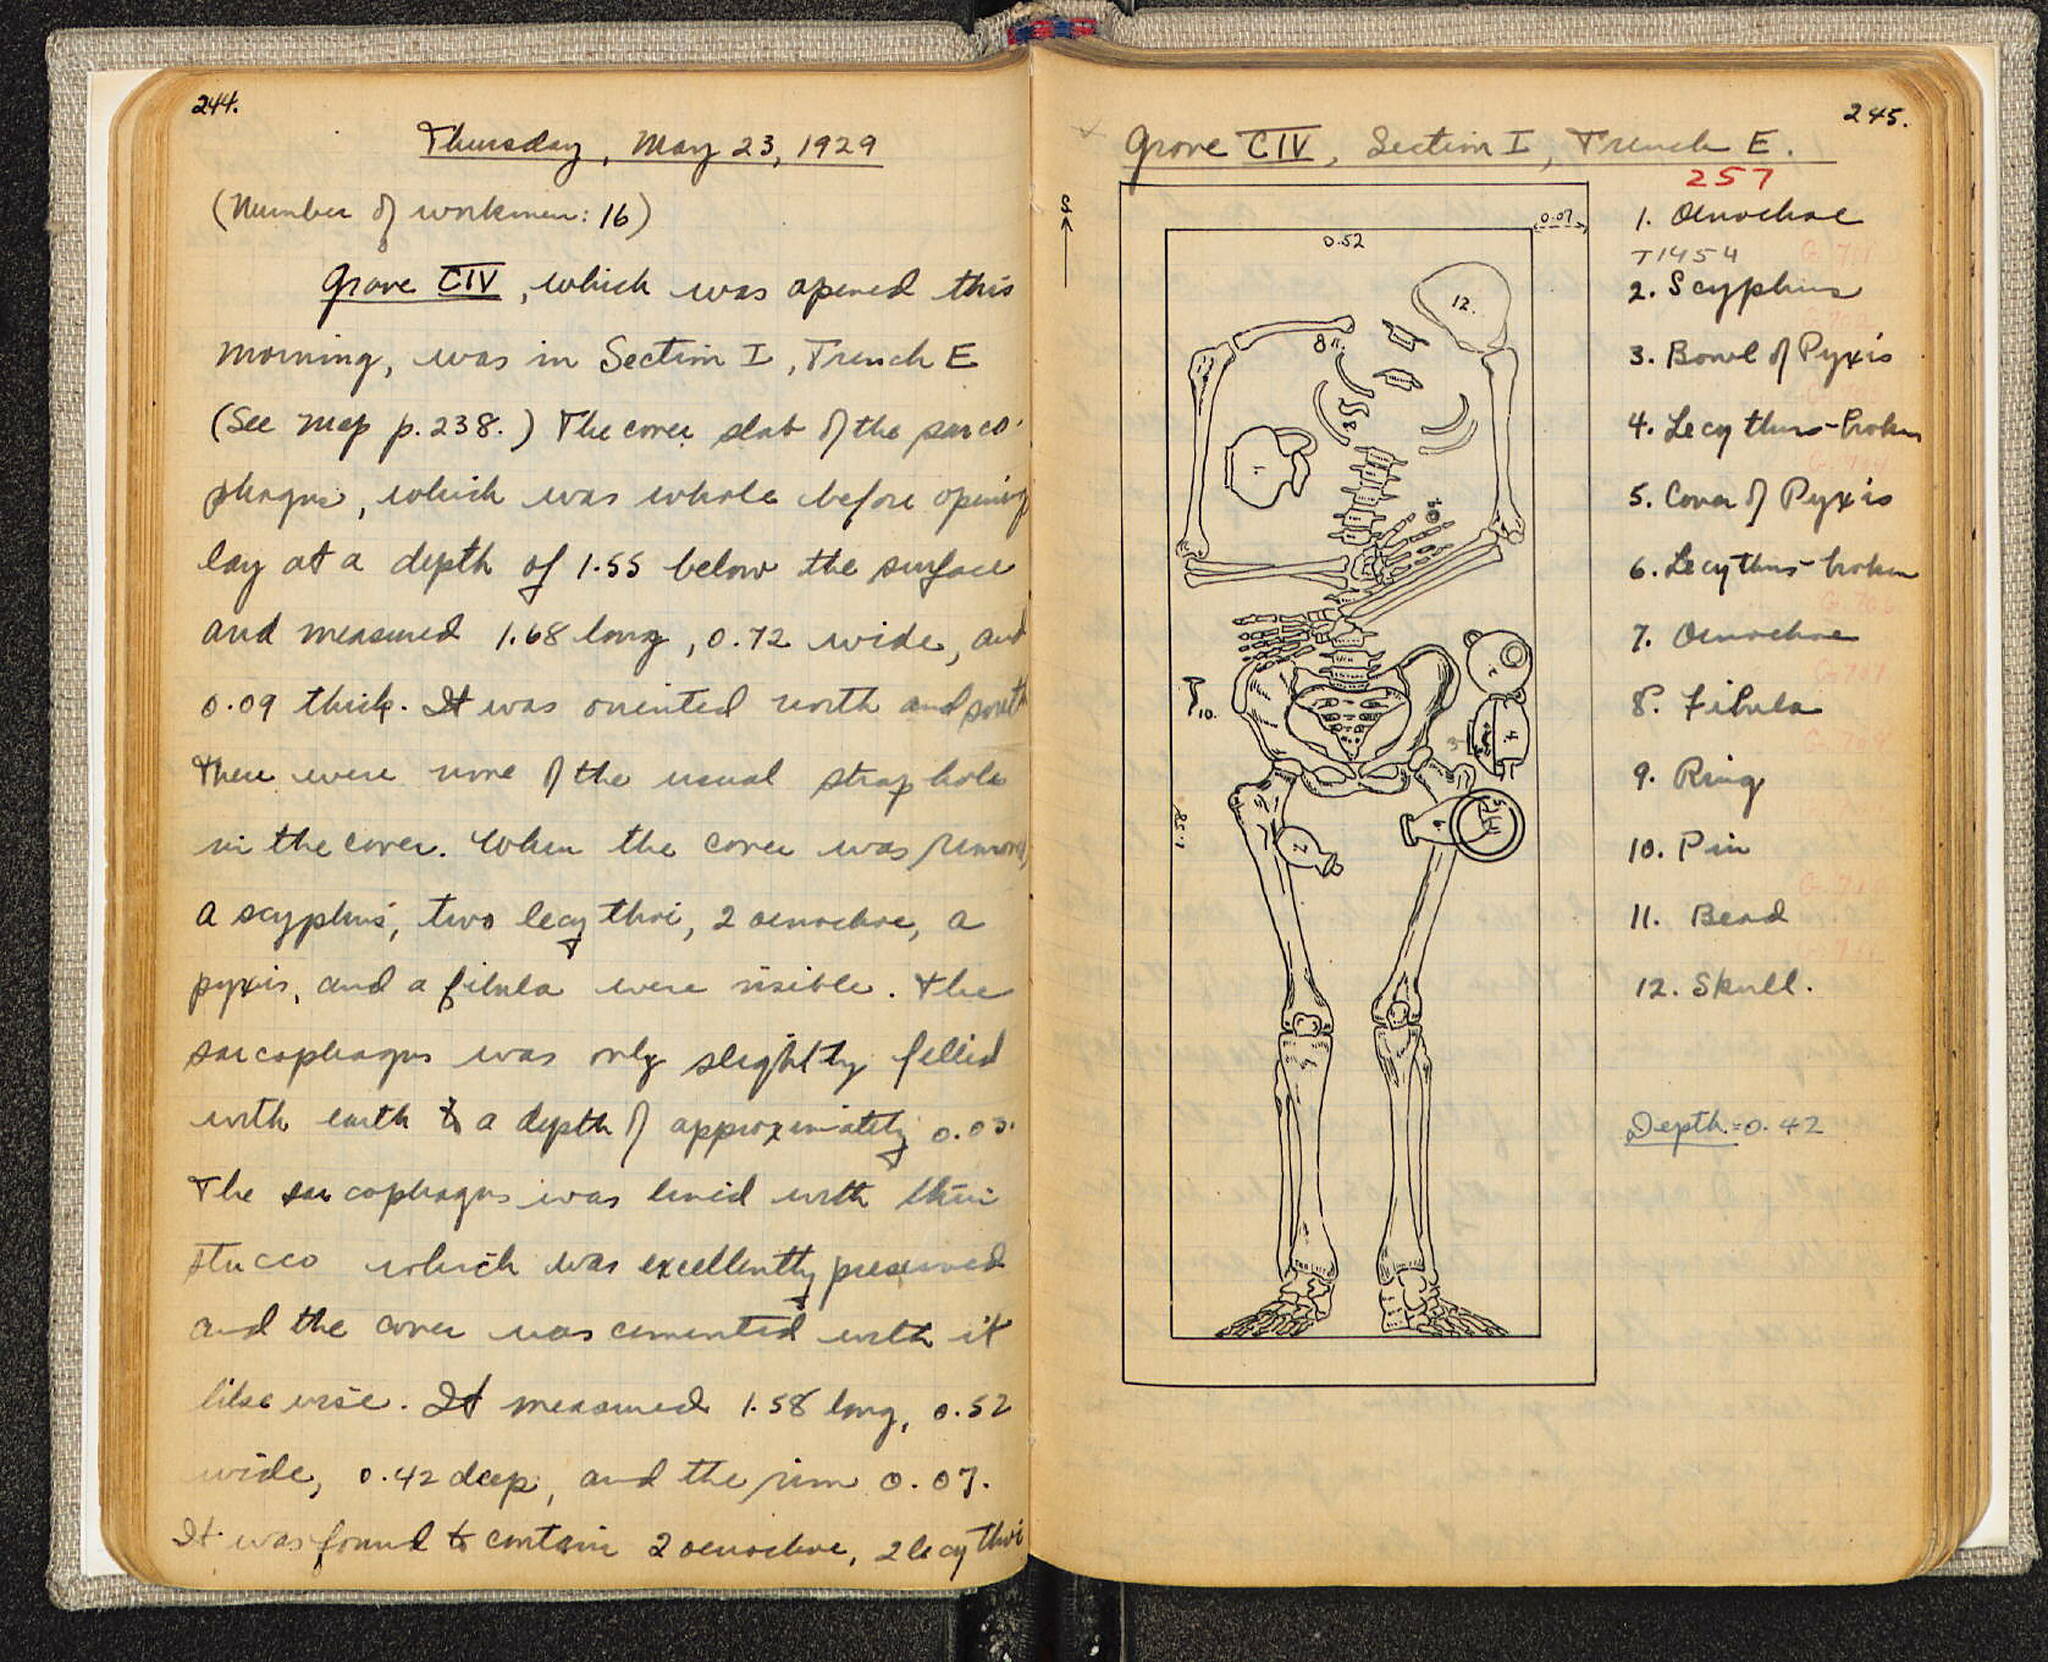 244.
Thursday, May 23, 1929
(Number of workmen: 16)
Grave CIV, which was opened this
morning, was in Section I, Trench E
(See map p. 238.) The cover slab of the sarco-
phagus, which was whole before opening
lay at a depth of 1.55 below the surface
and measured 1.68 long, 0.72 wide, and
0.09 thick. It was oriented north and south
There were none of the usual strap holes
in the cover. When the cover was removed,
a scyphus, two lecythoi, 2 oenochoe, a
pyxis, and a fibula were visible. The
sarcophagus was only slightly filled
with earth to a depth of approximately 0.03.
The sarcophagus was lined with thin
stucco which was excellently preserved
and the cover was cemented with it
likewise. It measured 1.58 long, 0.52
wide, 0.42 deep, and the rim 0.07.
It was found to contain 2 oenochoe, 2 lecythoi
245.
Grave CIV, Section I, Trench E.
257
S
0.07
0.52
1.58
12.
11.
8
1
9
10.
2
3
4
5
6
7
1. Oenochoe
T1454
G.701
2. Scyphus
3. Bowl of Pyxis
4. Lecythus-broken
G.704
5. Cover of Pyxis
6. Lecythus-broken
G.706
7. Oenochoe
G.707
8. Fibula
9. Ring
10. Pin
11. Bead
12. Skull.
Depth = 0.42